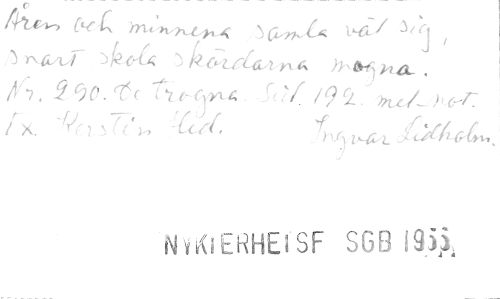 Åren och minnena samla våt sig,
snart skola skördarna mogna.
Nr. 290. De trogna. Sid. 192. mel-not.
Tx. Kerstin Hed. Ingvar Lidholm.
NYKIERHEISF SGB 1955.